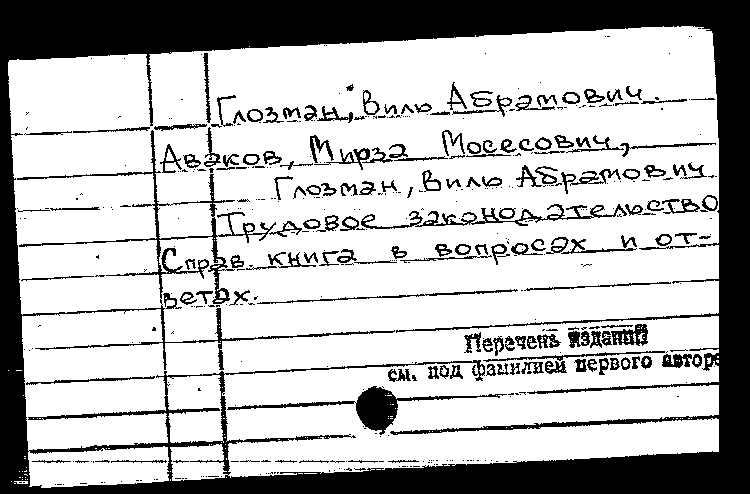 Глозман, Виль Абрамович.
Аваков, Мирза Мосесович,
Глозман, Виль Абрамович
Трудовое законодательство
Справ. книга в вопросах и от-
ветах.
Перечень изданий
см. под фамилией первого автора